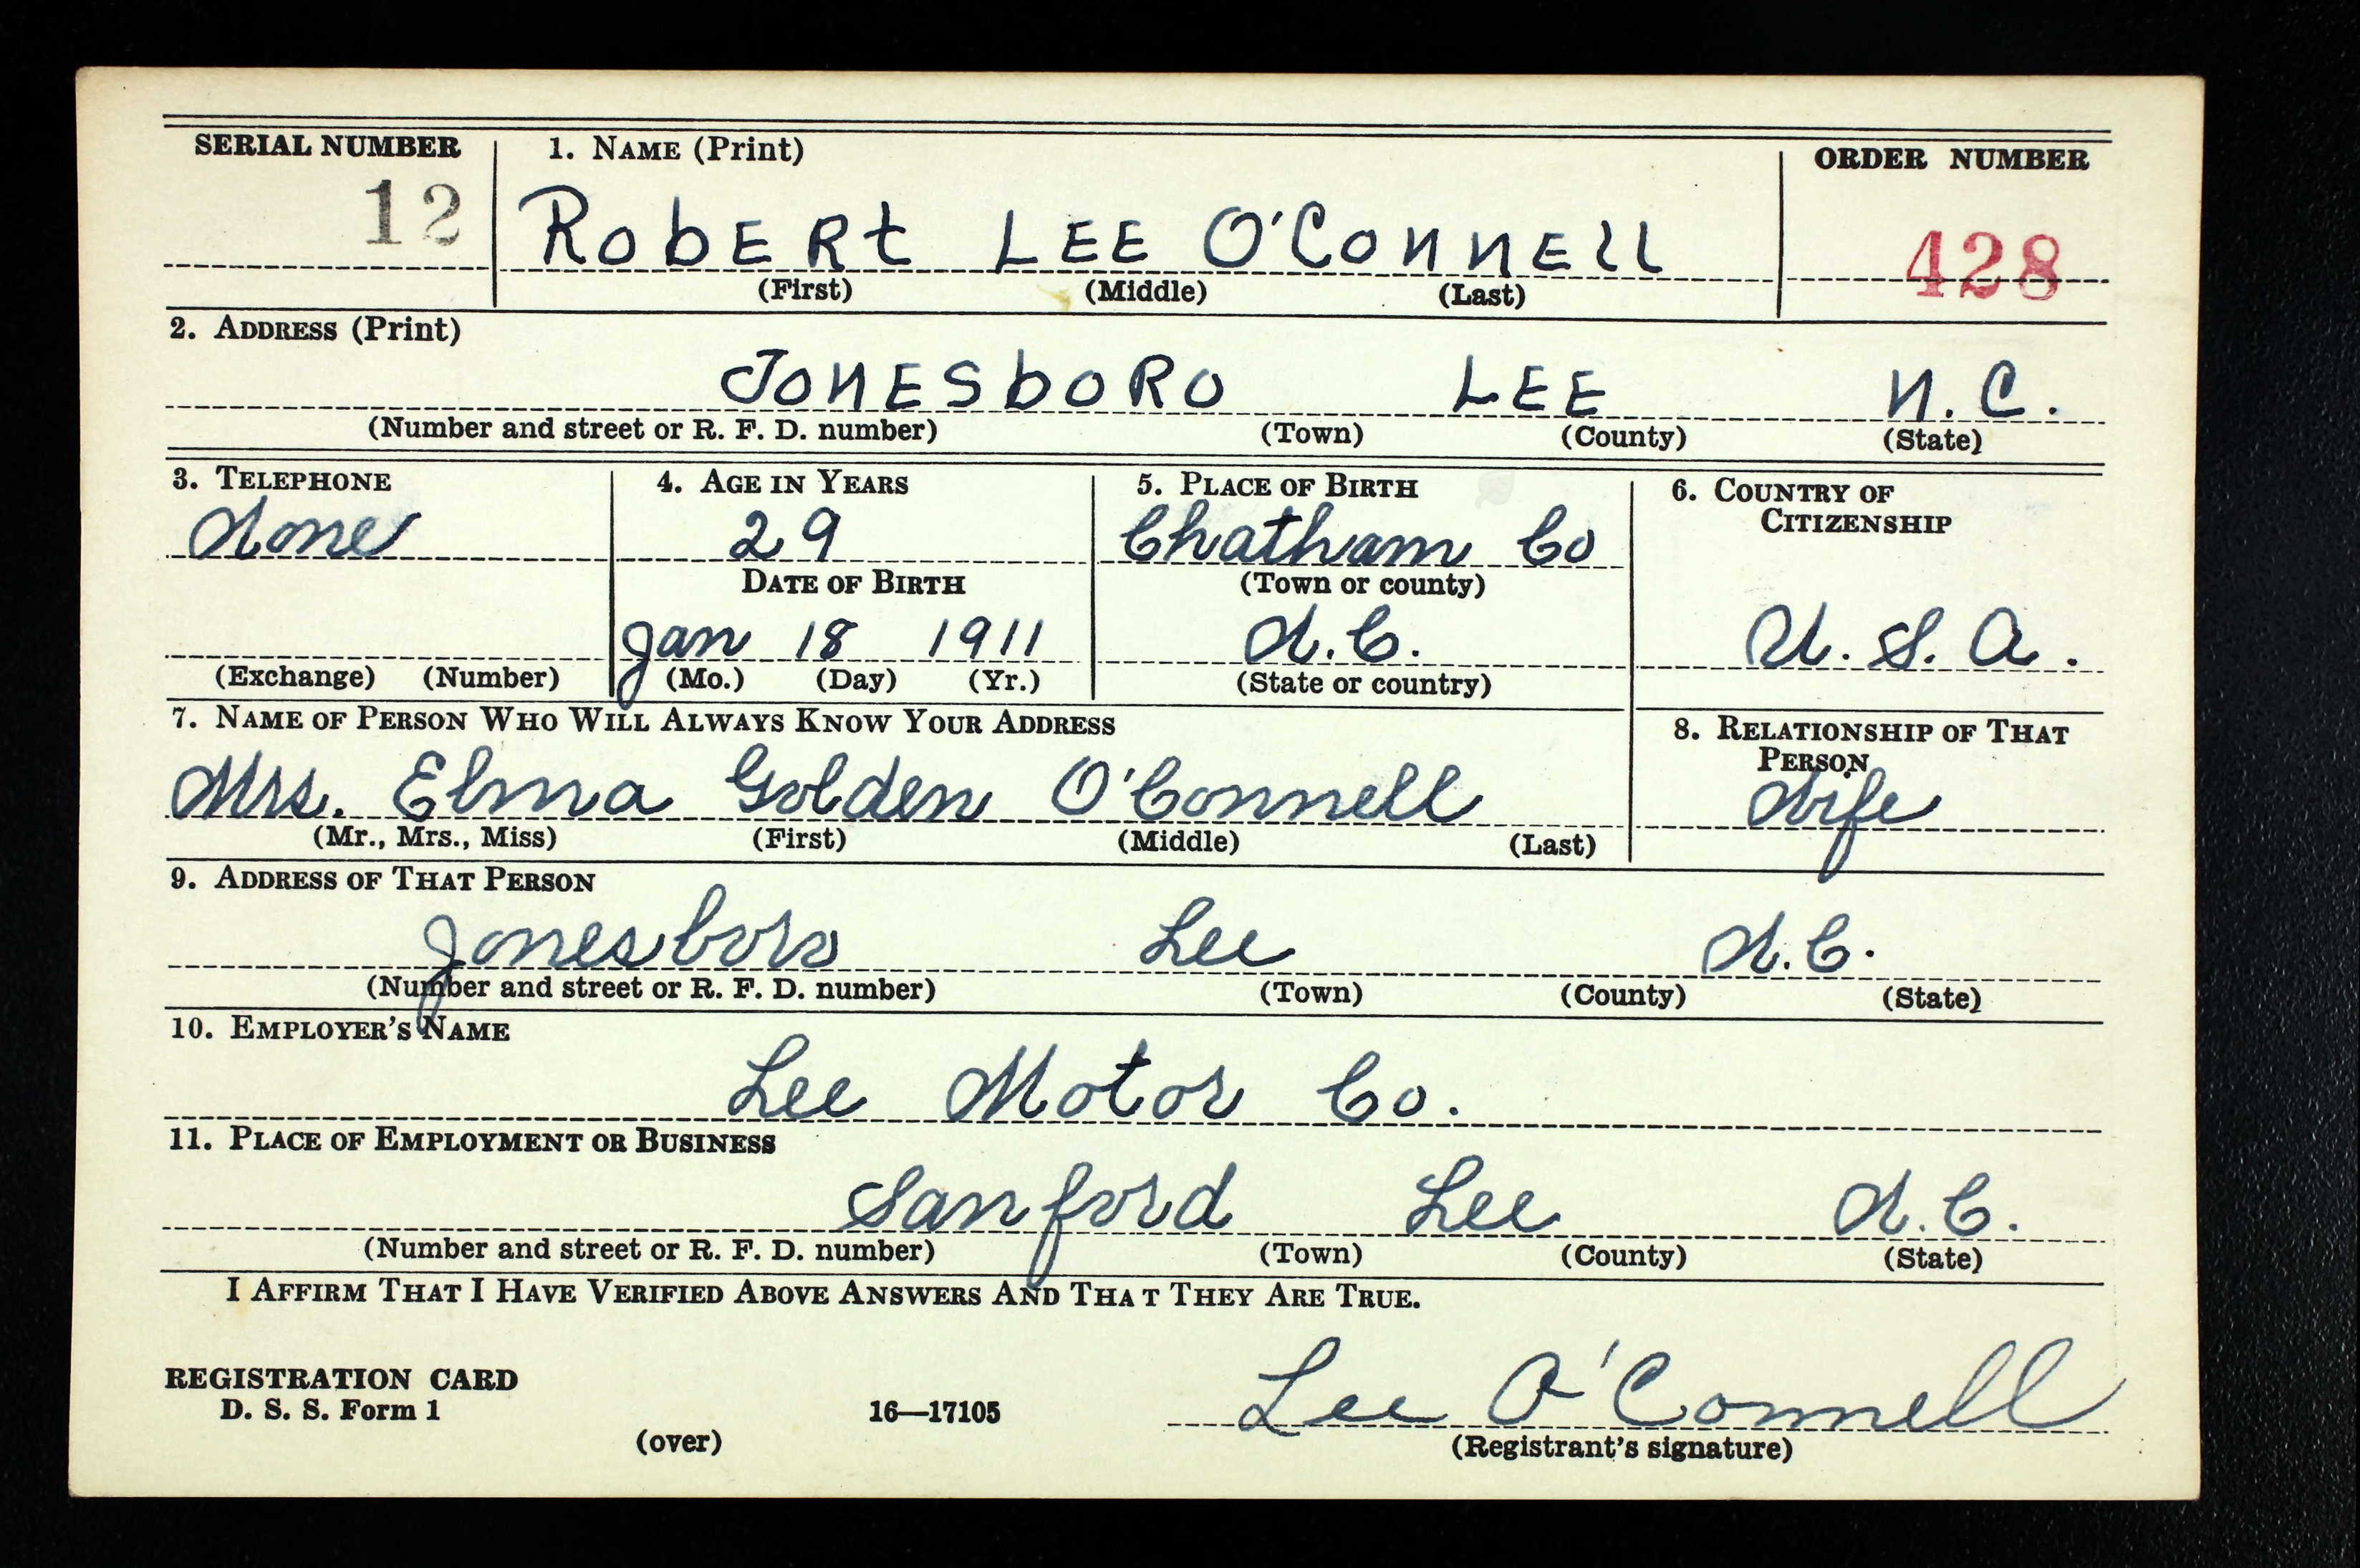 SERIAL NUMBER 1. NAME (Print) ORDER NUMBER
12 RobERt LEE O'ConnEll 428
(First) (Middle) (Last)
2. ADDRESS (Print)
JonESboRo LEE N.C.
(Number and street or R. F. D. number) (Town) (County) (State)
3. TELEPHONE 4. AGE IN YEARS 5. PLACE OF BIRTH 6. COUNTRY OF CITIZENSHIP
None 29 Chatham Co
DATE OF BIRTH (Town or county)
Jan 18 1911 N.C. U.S.A.
(Exchange) (Number) (Mo.) (Day) (Yr.) (State or country)
7. NAME OF PERSON WHO WILL ALWAYS KNOW YOUR ADDRESS 8. RELATIONSHIP OF THAT PERSON
Mrs. Elma Golden O'Connell Wife
(Mr., Mrs., Miss) (First) (Middle) (Last)
9. ADDRESS OF THAT PERSON
Jonesboro Lee N.C.
(Number and street or R. F. D. number) (Town) (County) (State)
10. EMPLOYER'S NAME
Lee Motor Co.
11. PLACE OF EMPLOYMENT OR BUSINESS
Sanford Lee N.C.
(Number and street or R. F. D. number) (Town) (County) (State)
I AFFIRM THAT I HAVE VERIFIED ABOVE ANSWERS AND THAT THEY ARE TRUE.
REGISTRATION CARD
D. S. S. Form 1 16—17105 Lee O'Connell
(over) (Registrant's signature)